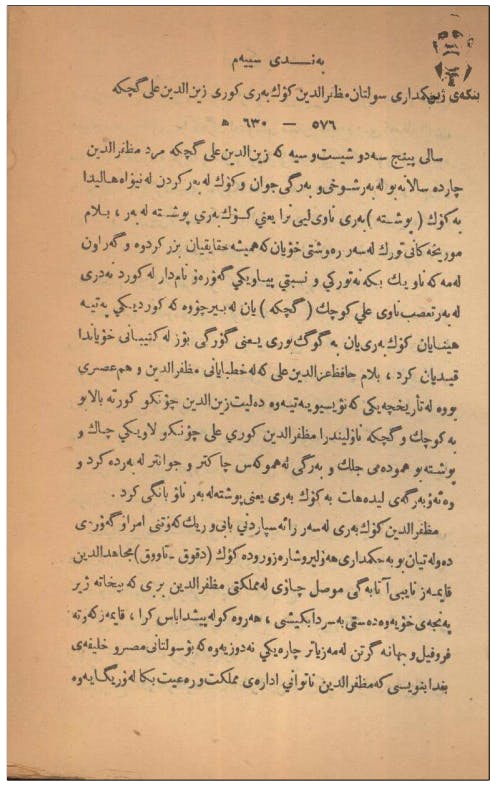 به‌نـــدی سییەم
بنکەی ژین
حکمداری سولتان مظفرالدین کۆک بەری کوری زین‌الدین علی گچکە
٥٧٦ — ٦٣٠ هـ
سالی پینج سەدو شیست و سیە کە زین‌الدین علی گچکە مرد مظفرالدین
چاردە سالانە بو لەبەر شـوخی و بەرگی جوان و کۆک لەبەر کردن لە نیۆاه هالیدا
بە کۆک ( پوشـتە ) بەری ناوی لیی نرا یعنی کـۆک بەری پوشـتە لەبەر ، بـلام
موریخەکانی تورک لەسەر رەوشتی خۆیان کە همیشە حقایقیان بزر کردوە و گەراون
لەمە کە ناو یـك بکە نە تورکي و نسبتي پیـاویکي گەۆرەۆ نام‌دار لە کورد نەدری
لە بەر تعصب ناوی علي کوچك ( گچکە ) یان لە بیرچۆوە کە کوردیـکي پەتیـە
هینـایان کۆک بەری یان بە گوگ بوری یـعنی گۆرگی بۆز لە کتیبـانی خۆیاندا
قیـدیان کرد ، بلام حافظ عزالدین علی کە لە خطبایانی مظفرالدین و هم عصـري
بووە لە تأریخچەیکی کە نۆیسیویـەتیـەوە دەلیت زین‌الدین چۆنکو کورتە بالا بو
بە کوچك و گچکە ناۆلیندرا مظفرالدین کوري علی چۆنـکو لاویـکي چاك و
پوشتە بو همودەمی جلك و بەرگی لە هموکەس چاکتر و جوانتر لەبەردە کرد و
وەتەۆ بەرگەی لیدەهات بە کۆک بەری یعنی پوشتە لەبەر ناۆ بانگی کرد .
مظفرالدین کۆک بەری لەسەر رائە سپاردنی بابی و ریك کەۆتنی امراۆ گەۆرەی
دەولەتیان بو بە حکمداری هەۆلیرو شارەزورودە کۆک ( دقوق - تاووق ) مجاهدالدین
قایمـەز نایبی آتابەگی موصل چاۆی لە مملکتی مظفرالدین بـری کە بیخاتە ژیر
پەنجەی خۆیەوە دەستی بەسردا بکیشی ، هەروەکو لە پیشدا باس کرا ، قایمەز کەۆتە
فروفیل و بهانە گرتن لەمە زیاتر چارەیکي نە دوزیەوە کە بۆ سولتانی مصرو خلیفەی
بغدا بنویسی کە مظفرالدین ناتوانی ادارەی مملکت و رەعیت بکا لەۆریگایەوە